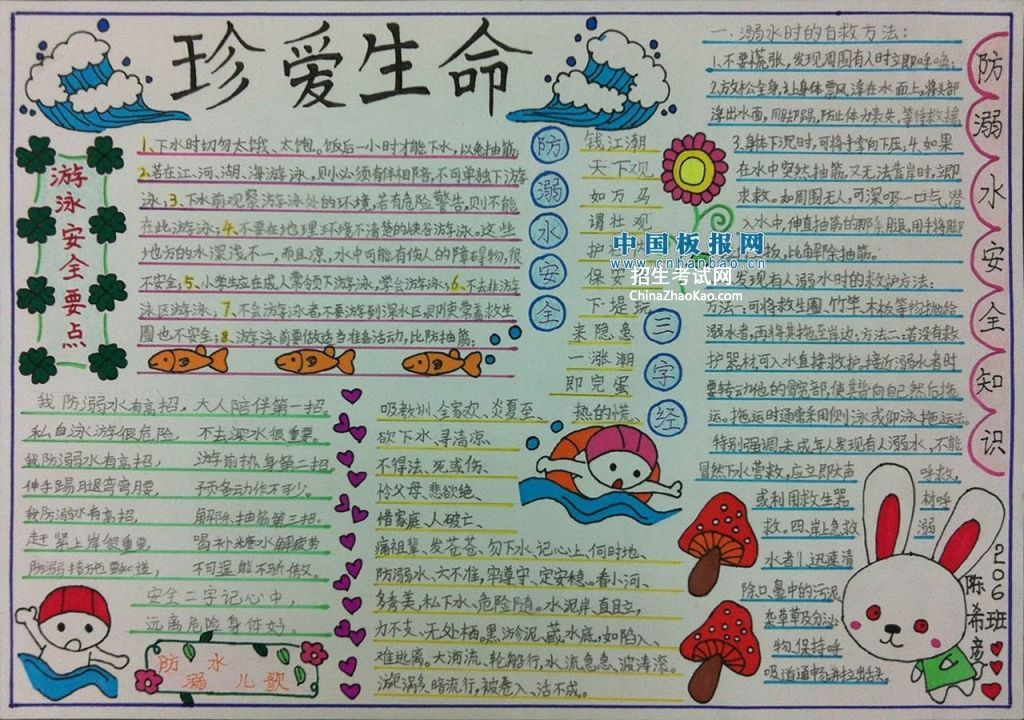 珍爱生命
游泳安全要点
1、下水时切勿太饿、太饱。饭后一小时才能下水，以免抽筋
2、若在江、河、湖、海游泳，则必须有伴相陪，不可单独下游
泳；3、下水前观察游泳处的环境，若有危险警告，则不能
在此游泳；4、不要在地理环境不清楚的峡谷游泳。这些
地方的水深浅不一，而且凉，水中可能有伤人的障碍物，很
不安全；5、小学生应在成人带领下游泳，学会游泳；6、不去非游
泳区游泳；7、不会游泳者不要游到深水区，即使带着救生
圈也不安全；8、游泳前要做适当准备活动，比防抽筋；
防溺水安全
三字经
钱江潮
天下观
如万马
谓壮观
护
保安
下堤玩
来隐急
一涨潮
即完蛋
吸教训、全家欢、炎夏至、热的慌、
欲下水、寻清凉、
不得法、死或伤、
怜父母、悲欲绝、
惜家庭、人破亡、
痛祖辈、发苍苍、勿下水、记心上、何时地、
防溺水、六不准，牢遵守、定安稳。看小河、
多秀美，私下水、危险随。水泥岸、直且立，
力不支、无处栖。黑淤泥、藏水底，如陷入、
难逃离。大海流、轮船行，水流急急、波涛滚。
漩涡多、暗流行，被卷入、活不成。
我防溺水有高招，大人陪伴第一招。
私自泳游很危险，不去深水很重要。
我防溺水有高招，游前热身第二招。
伸手踢腿弯弯腰，预备动作不可少。
我防溺水有高招，解除抽筋第三招。
赶紧上岸很重要，喝补糖水解疲劳
防溺措施要知道，不可逞能不骄傲。
安全二字记心中，
远离危险身体好。
防溺水儿歌
防溺水安全知识
一、溺水时的自救方法：
1.不要慌张，发现周围有人时立即呼唤；
2.放松全身，让身体飘浮在水面上，将头部
浮出水面，用脚踢，防止体力丧失，等待救援
3.身体下沉时，可将手掌向下压；4.如果
在水中突然抽筋，又无法靠岸时，立即
求救。如周围无人，可深吸一口气，潜
入水中，伸直抽筋的那条腿，用手将脚
扳，比解除抽筋。
发现有人溺水时的救护方法：
方法一：可将救生圈、竹竿、木板等物抛给
溺水者，再将其拖至岸边；方法二：若没有救
护器材，可入水直接救护。接近溺水者时
要转动他的髋部，使其背向自己然后拖
运。拖运时通常采用侧泳或仰泳拖运法
特别强调：未成年人发现有人溺水，不能
冒然下水营救，应立即大声呼救，
或利用救生器材呼
救。四、岸上急救溺
水者1.迅速清
除口、鼻中的污泥、
杂草及分泌
物，保持呼
吸道通畅，并拉出舌头。
206班
陈希彦
中国板报网
www.cnbanbao.cn
招生考试网
ChinaZhaoKao.com